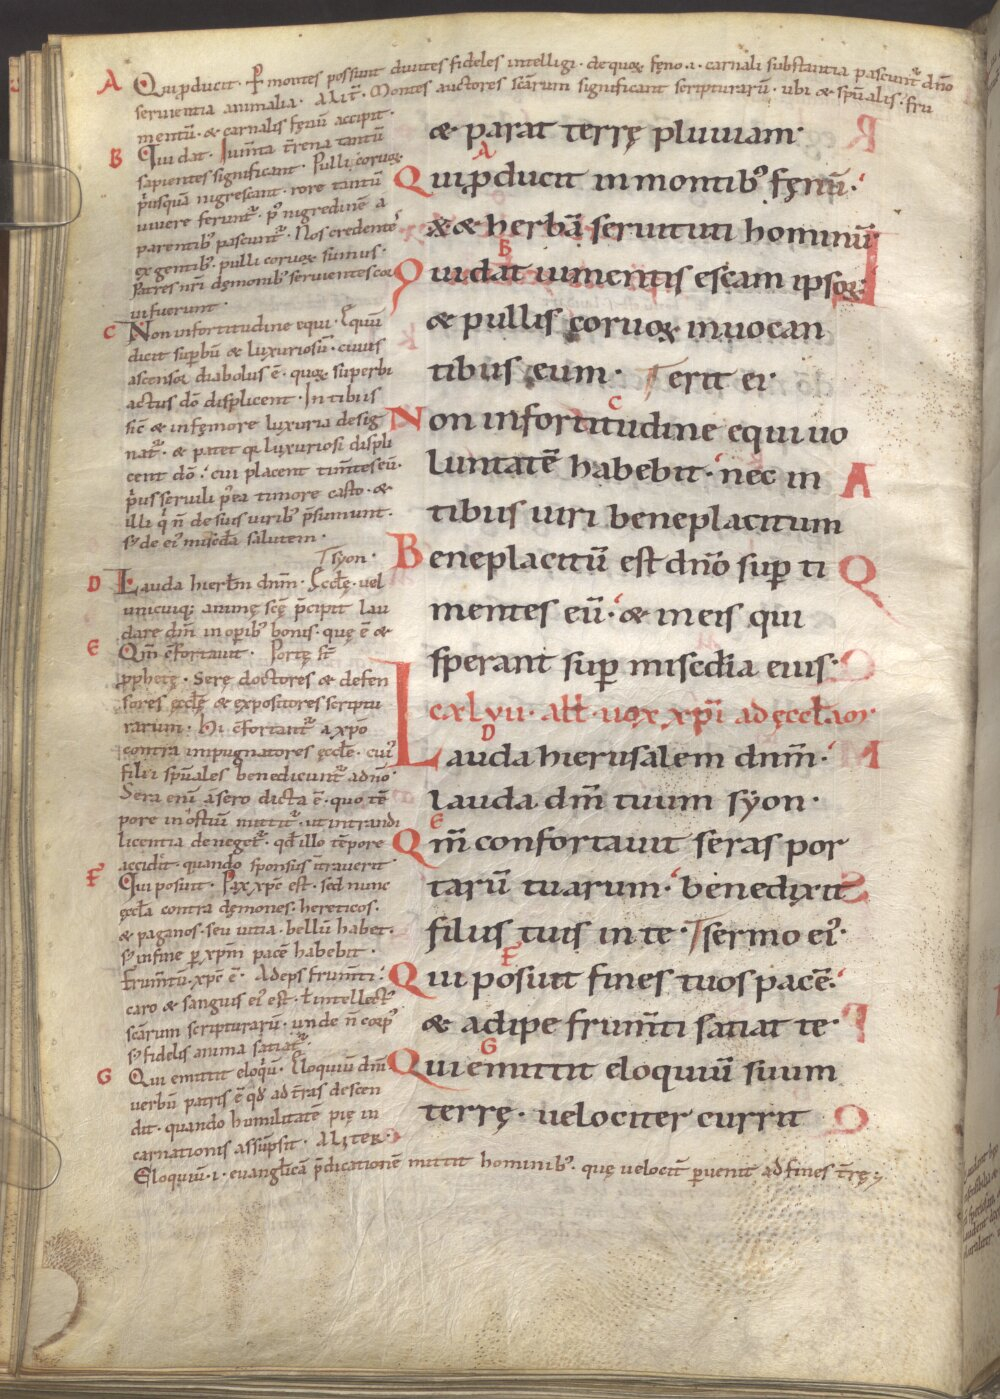 A Qui producit · P montes possunt diuites fideles intelligi · de quoꝝ fęno · i · carnali substantia pascunt᷑ dn̄o
seruientia animalia · Alit᷑ · Montes auctores scārum significant scripturarū · ubi & sp̄ualis · fru
mentū · & carnalis fęnū accipit ·
B Qui dat · Ium̄ta t̄rena tantū
sapientes significant · Pulli coruoꝝ
p̓usquā nigrescant · rore tantū
uiuere ferunt᷑ · p᷒ nigredinē a
parentib᷒ pascunt᷑ · Nos credentes
ex gentib᷒ · pulli coruoꝝ sumus ·
Patres nr̄i dęmonib᷒ seruientes cor
ui fuerunt ·
C Non in fortitudine equi · Equū
dicit suꝑbū & luxuriosū · cuius
ascensor diabolus ē · quoꝝ superbi
actus dō displicent · In tibiis
sic̄ & in fęmore luxuria desig
nat᷑ · & patet qa luxuriosi displi
cent dō · cui placent tim̄tes eū ·
p̓us seruili p̄ea timore casto · &
illi q̓ n̄ de suis uirib᷒ p̄sumunt ·
sꝫ de ei᷒ misc̄dia salutem ·
⁊ syon ·
D Lauda hierl̄m dnm̄ · Ęccl̄ę · uel
unicuiqꝫ animę scę̄ p̄cipit lau
dare dm̄ in oꝑib᷒ bonis · quę ē &
E Qm̄ c̄fortauit · Portę st̄
ꝓphetę · Serę doctores & defen
sores ęccl̄ę & expositores scriptu
rarum · Hi c̄fortant᷑ a xp̄o
contra impugnatores ęccl̄ę · cui᷒
filii sp̄uales benedicunt᷑ a dn̄o ·
Sera enī a sero dicta ē · quo tē
pore in ostiū mittit᷑ · ut intrandi
licentia deneget᷑ · qd̄ illo tēpore
accidit · quando sponsus īntrauerit
F Qui posuit · Pax xp̄c est · sed nunc
ęccl̄a contra dęmones · hereticos ·
& paganos · seu uitia · bellū habet ·
sꝫ in fine ꝑ xp̄m pacē habebit ·
Frum̄tū · xp̄c ē · Adeps frum̄ti ·
caro & sanguis ei᷒ est · ł intellect᷒
scārum scripturarū · unde n̄ corp᷒
sꝫ fidelis anima satiat᷑ ·
G Qui emittit eloq̓ū · Eloquiū dn̄i
uerbū patris ē qd̄ ad t̄ras descen
dit · quando humilitatē pię in
carnationis assūpsit · ALITER ·
Eloquiū · i · euanglicā p̄dicationē mittit hominib᷒ · quę uelocit᷑ ꝑuenit ad fines t̄rę ·
& parat terrę pluuiam ·
A
Qui ꝓducit in montib᷒ fęnū ·
& herbā seruituti hominū ·
B
Qui dat iumentis escam ipsoꝝ ·
& pullis coruoꝝ inuocan
tibus eum · ⁊erit ei ·
C
Non in fortitudine equi uo
luntatē habebit · nec in
tibiis uiri beneplacitum
Beneplacitū est dn̄o suꝑ ti
mentes eū · & in eis qui
sperant suꝑ misc̄dia eius ·
cxlvii · all̄ · uox xp̄i ad ęccl̄am ·
D
Lauda hierusalem dnm̄ ·
lauda dm̄ tuum syon ·
E
Qm̄ confortauit seras por
tarū tuarum · benedixit
filiis tuis in te · ⁊sermo ei᷒ ·
F
Qui posuit fines tuos pacē ·
& adipe frum̄ti satiat te ·
G
Qui emittit eloquiū suum
terrę · uelociter currit